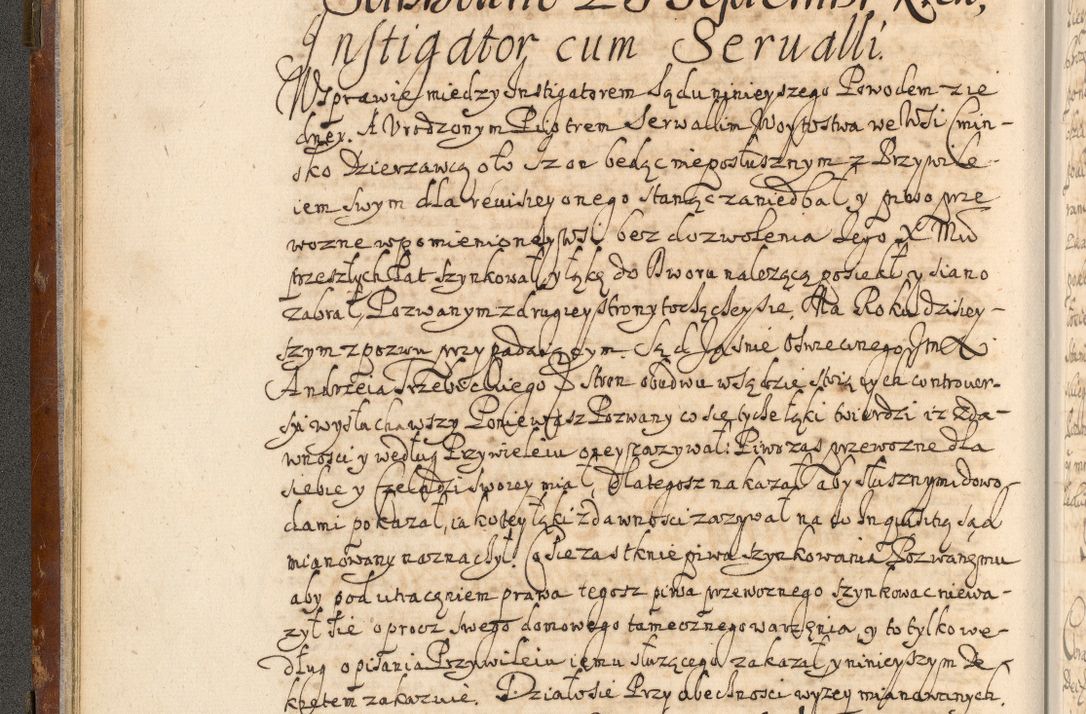 Sabbatho 28 Septembr.
Instigator cum Serualli.
W Sprawie między Instigatorem Sądu ninieyszego Powodem z ie
dney. A Urodzonym Piotrem Serwallim Woytostwa we Wsi Cmin-
sko Dzierzawcą oto Sz on będąc nieposłusznym z Przywile-
iem swym dla rewisiey onego stanąć zaniedbał, y piwo prze
wozne w pomienioney Wsi bez dozwolenia Jego X Mci
przeszłych Lat szynkował, y łąkę do Dworu nalezącą posiekł y siano
zabrał, Pozwanym z drugiey strony toczącey sie, Na Roku dzisiey-
szym z pozwu przypadaiącym. Sąd Jasnie Oswieconego Jmci X
Andrzeia Trzebickiego Stron obudwu w Sądzie stoiących controuer-
syi wysłuchawszy Poniewasz Pozwany co się tycze łąki twierdzi iz zda-
wnosci y według Przywileiu oney zazywał: Piwo zas przewozne dla
siebie y Czeladzi swoiey miał, Dlategosz nakazał aby słusznymi dowo-
dami pokazał, iako tey łąki zdawnosci zazywał na co Inquisitią sąd
mianowany naznaczył. Co sie zas tknie piwa szynkowania Pozwanemu
aby pod utraceniem prawa tegosz piwa przewoznego szynkowac niewa-
zył sie oprocz swego domowego tamecznego warzenia, y to tylko we-
dług opisania Przywileiu iemu słuzącego zakazał, y ninieyszym De
kretem zakazuie. Działosie Przy obecnosci wyzey mianowanych.